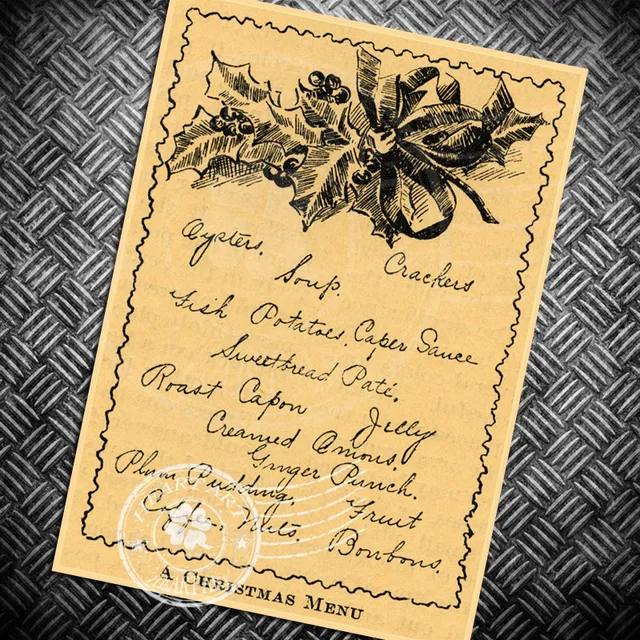 Oysters. Crackers
Soup.
Fish Potatoes, Caper Sauce
Sweetbread Paté.
Roast Capon Jelly
Creamed Onions.
Ginger Punch.
Plum Pudding. Fruit
Nuts. Bonbons.
A Christmas Menu